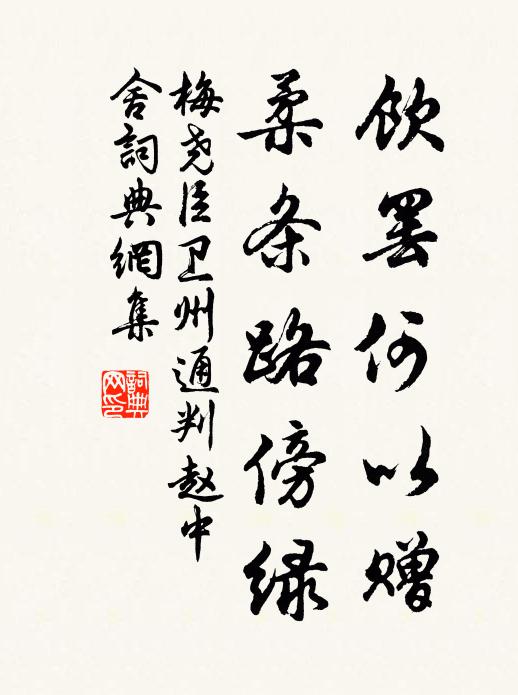 飲罢何以赠
柔条路傍绿
梅尧臣卫州通判赵中
舍詞典網集
詞典网印